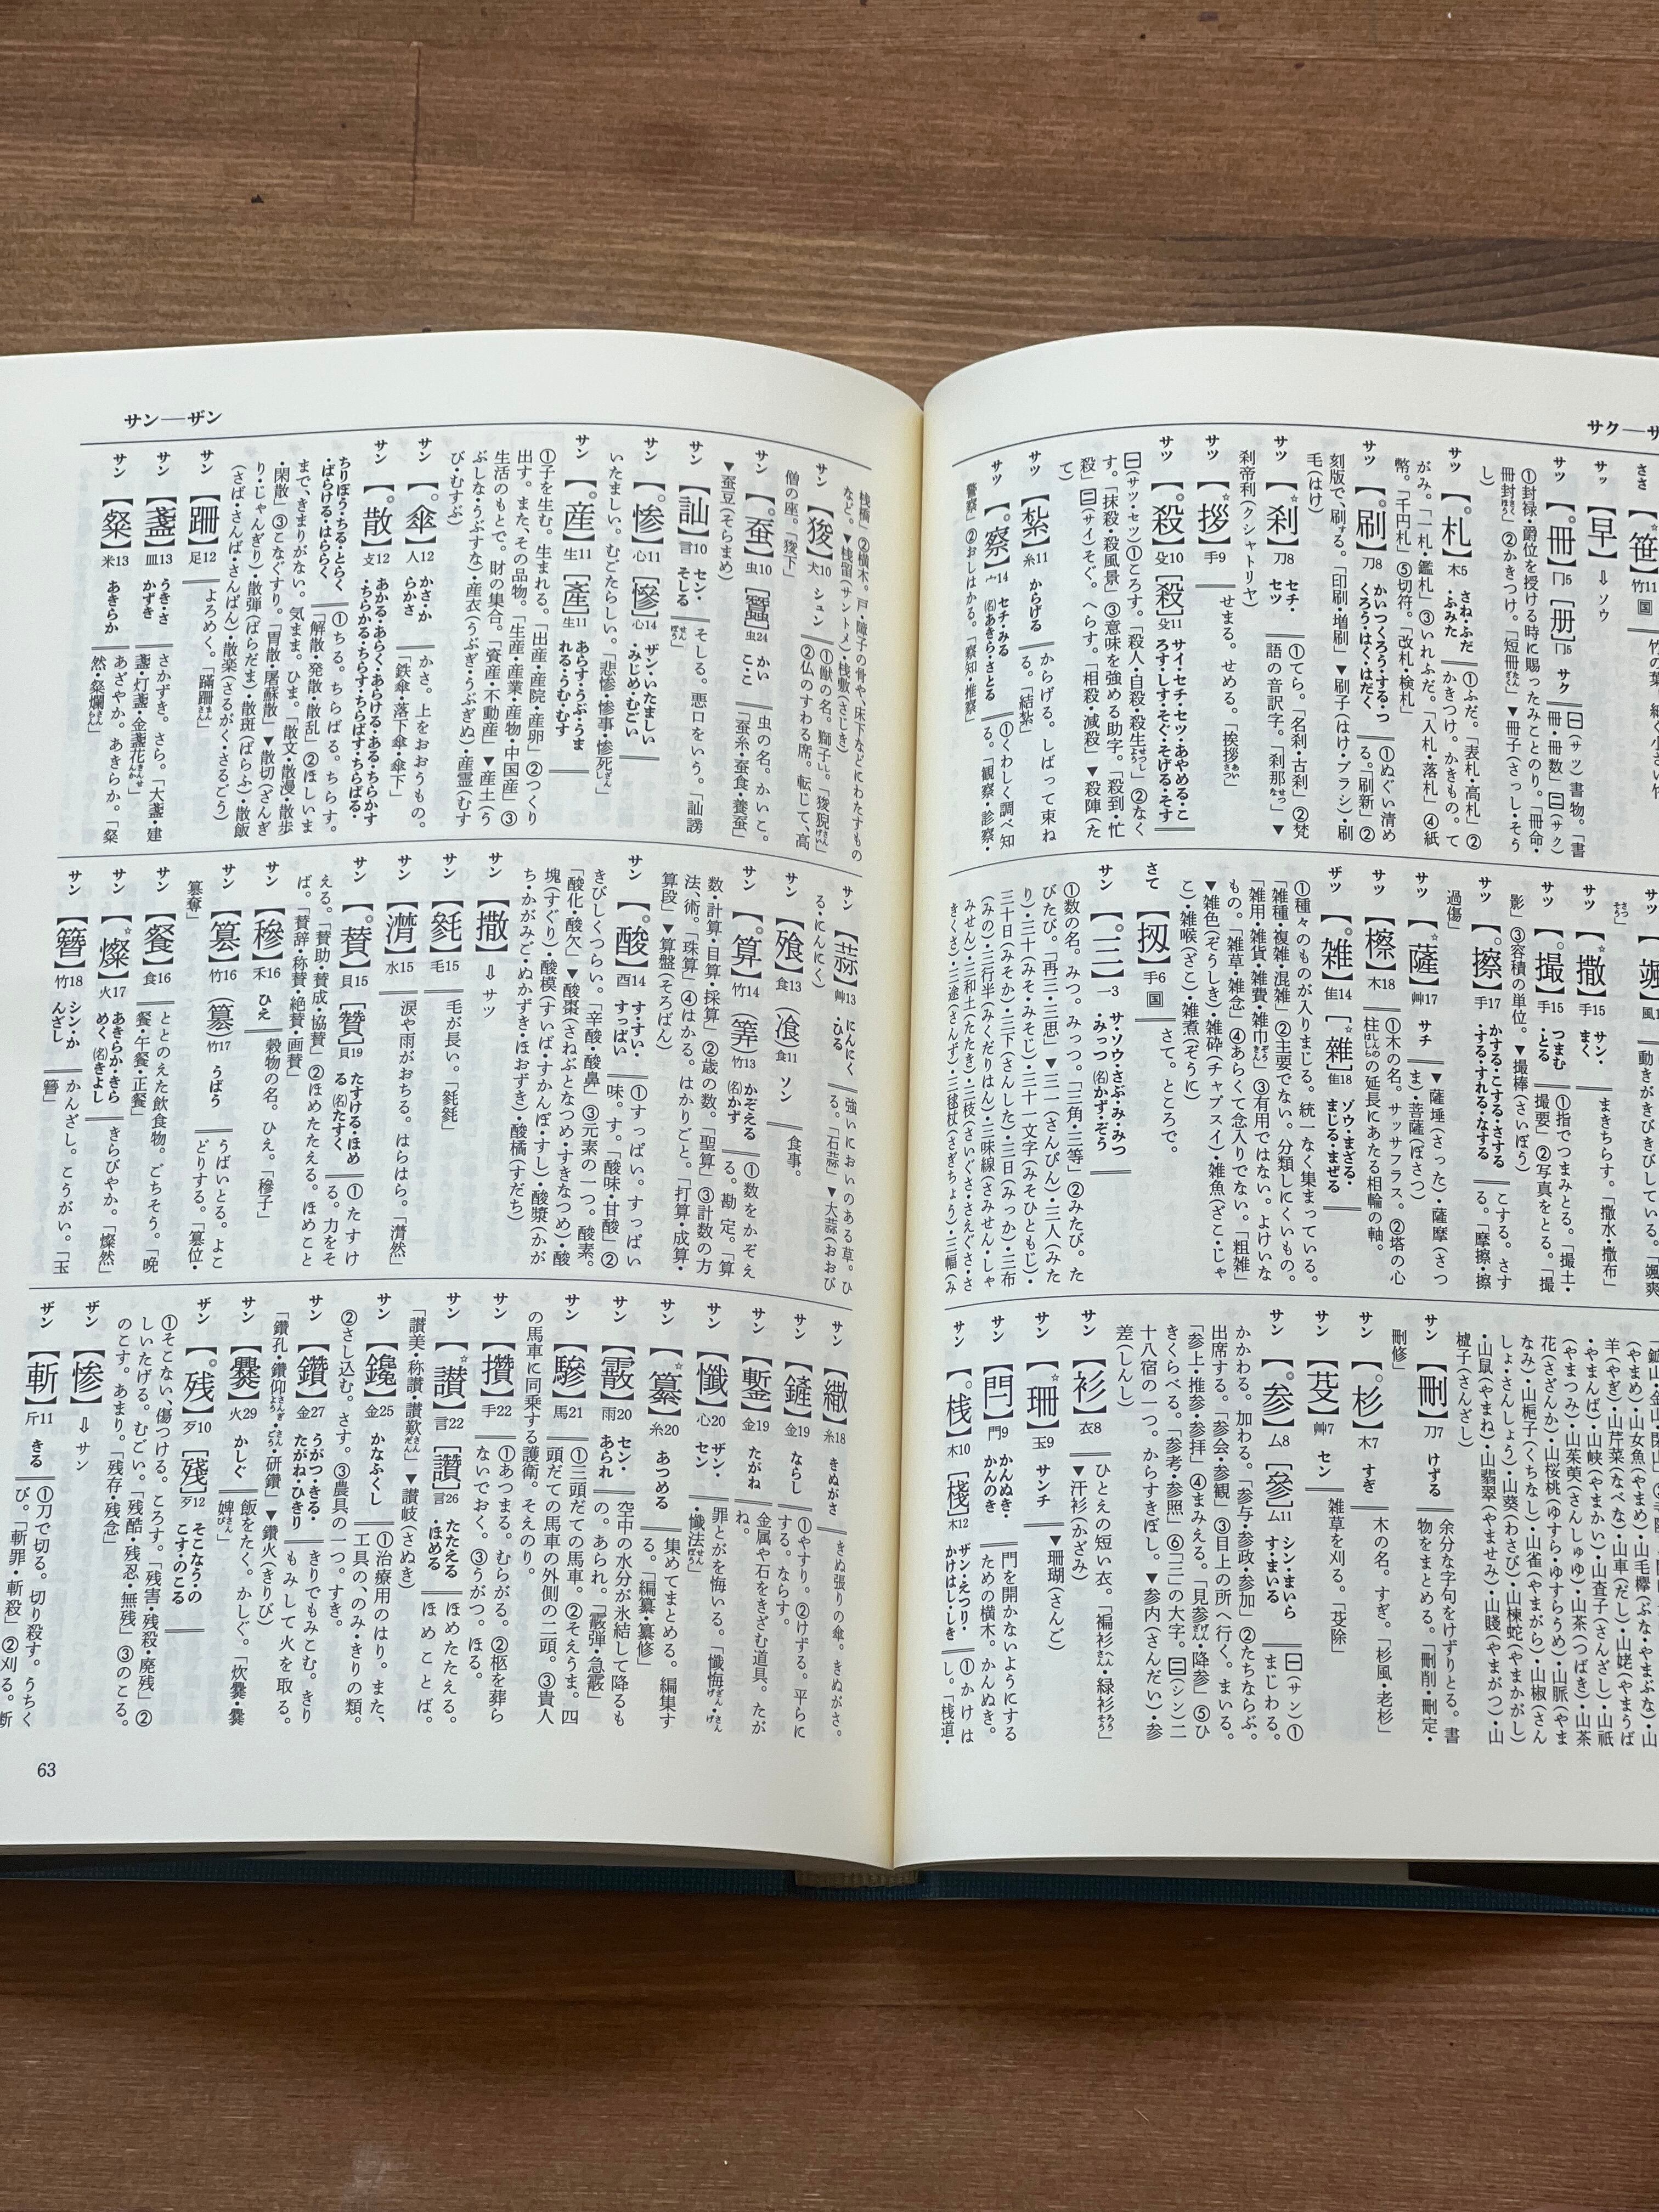 サク―サ
ささ【☆笹】竹11 国
サッ【早】⇩ソウ
サツ【°冊】冂5［冊］冂5 サク 一(サツ)書物。「書冊・冊数」二(サク)
①封禄・爵位を授ける時に賜ったみことのり。「冊命・
冊封」②かきつけ。「短冊」▼冊子(さっし・そう
し)
サツ【°札】木5 さね・ふだ・ふみた ①ふだ。「表札・高札」②かきつけ。かきもの。て
がみ。「一札・鑑札」③いれふだ。「入札・落札」④紙
幣。「千円札」⑤切符。「改札・検札」
サツ【°刷】刀8 かいつくろう・する・つくろう・はく・はだく ①ぬぐい清める。「刷新」②
刻版で刷する。「印刷・増刷」▼刷子(はけ・ブラシ)・刷
毛(はけ)
サツ【☆刹】刀8 セチ・セツ ①てら。「名刹・古刹」②梵語の音訳字。「刹那」▼
刹帝利(クシャトリヤ)
サツ【☆拶】手9 せまる。せめる。「挨拶」
サツ【°殺】殳10［殺］殳11 サイ・セチ・セツ・あやめる・ころす・しす・そぐ・そげる・そす
一(サツ・セツ)①ころす。「殺人・自殺・殺生」②なく
す。「抹殺・殺風景」③意味を強める助字。「殺到・忙
殺」二(サイ)そぐ。へらす。「相殺・減殺」▼殺陣(た
て)
サツ【紮】糸11 からげる からげる。しばって束ねる。「結紮」
サツ【°察】宀14 セチ・みる (名)あきら・さとる ①くわしく調べ知る。「観察・診察・
警察」②おしはかる。「察知・推察」
サツ【☆撒】手15 サン・まく まきちらす。「撒水・撒布」
サツ【°撮】手15 つまむ・とる ①指でつまみとる。「撮土・撮要」②写真をとる。「撮
影」③容積の単位。▼撮棒(さいぼう)
サツ【°擦】手17 かする・こする・さする・する・すれる・なする こする。さする。「摩擦・擦
過傷」
サツ【☆薩】艸17 サチ ▼薩埵(さった)・薩摩(さつま)・菩薩(ぼさつ)
サツ【檫】木18 ①木の名。サッサフラス。②塔の心柱の延長にあたる相輪の軸。
ザツ【°雑】隹14［☆雜］隹18 ゾウ・まざる・まじる・まぜる
①種々のものが入りまじる。統一なく集まっている。
「雑種・複雑・混雑」②主要でない。分類しにくいもの。
「雑用・雑貨・雑費・雑巾」③有用ではない。よけいな
もの。「雑草・雑念」④あらくて念入りでない。「粗雑」
▼雑色(ぞうしき)・雑砕(チャプスイ)・雑魚(ざこ・じゃ
こ)・雑喉(ざこ)・雑煮(ぞうに)
さて【扨】手6 国 さて。ところで。
サン【°三】一3 サ・ソウ・さぶ・み・みつ・みっつ (名)かず・ぞう
①数の名。みつ。みっつ。「三角・三等」②みたび。た
びたび。「再三・三思」▼三一(さんぴん)・三人(みた
り)・三十(みそ・みそじ)・三十一文字(みそひともじ)・
三十日(みそか)・三下(さんした)・三日(みっか)・三布
(みの)・三行半(みくだりはん)・三味線(さみせん・しゃ
みせん)・三和土(たたき)・三枝(さいぐさ・さえぐさ・さ
きくさ)・三途(さんず)・三毬杖(さぎちょう)・三幅(み
(やまめ)・山女魚(やまめ)・山毛欅(ぶな・やまぶな)・山
羊(やぎ)・山芹菜(なべな)・山車(だし)・山姥(やまうば
・やまんば)・山峡(やまかい)・山査子(さんざし)・山祇
(やまつみ)・山茱萸(さんしゅゆ)・山茶(つばき)・山茶
花(さざんか)・山桜桃(ゆすら・ゆすらうめ)・山脈(やま
なみ)・山梔子(くちなし)・山雀(やまがら)・山椒(さん
しょ・さんしょう)・山葵(わさび)・山楝蛇(やまかがし)
・山鼠(やまね)・山翡翠(やませみ)・山賤(やまがつ)・山
樝子(さんざし)
サン【刪】刀7 けずる 余分な字句をけずりとる。書物をまとめる。「刪削・刪定・
刪修」
サン【°杉】木7 すぎ 木の名。すぎ。「杉風・老杉」
サン【芟】艸7 セン 雑草を刈る。「芟除」
サン【°参】ム8［參］ム11 シン・まいら・す・まいる 一(サン)①まじわる。
かかわる。加わる。「参与・参政・参加」②たちならぶ。
出席する。「参会・参観」③目上の所へ行く。まいる。
「参上・推参・参拝」④まみえる。「見参・降参」⑤ひ
きくらべる。「参考・参照」⑥「三」の大字。二(シン)二
十八宿の一つ。からすきぼし。▼参内(さんだい)・参
差(しんし)
サン【衫】衣8 ひとえの短い衣。「褊衫・緑衫」▼汗衫(かざみ)
サン【☆珊】玉9 サンチ ▼珊瑚(さんご)
サン【閂】門9 かんぬき・かんのき 門を開かないようにするための横木。かんぬき。
サン【°桟】木10［棧］木12 ザン・えつり・かけはし・しき ①かけはし。「桟道・
サン―ザン
桟橋」②横木。戸・障子の骨や、床下などにわたすもの
など。▼桟留(サントメ)・桟敷(さじき)
サン【狻】犬10 シュン ①獣の名。獅子。「狻猊」②仏のすわる席。転じて、高
僧の座。「狻下」
サン【°蚕】虫10［蠶］虫24 かい・こ・こ 虫の名。かいこ。「蚕糸・蚕食・養蚕」
▼蚕豆(そらまめ)
サン【訕】言10 セン・そしる そしる。悪口をいう。「訕謗」
サン【°惨】心11［慘］心14 ザン・いたましい・みじめ・むごい
いたましい。むごたらしい。「悲惨・惨事・惨死」
サン【°産】生11［產］生11 あらす・うぶ・うまれる・うむ・むす
①子を生む。生まれる。「出産・産院・産卵」②つくり
出す。また、その品物。「生産・産業・産物・中国産」③
生活のもとで。財の集合。「資産・不動産」▼産土(う
ぶしな・うぶすな)・産衣(うぶぎ・うぶぎぬ)・産霊(むす
び・むすぶ)
サン【°傘】人12 かさ・からかさ かさ。上をおおうもの。「鉄傘・落下傘・傘下」
サン【°散】攴12 あかる・あらく・あらける・ある・ちらかす・ちらかる・ちらす・ちらばす・ちらばる・
ちりぼう・ちる・とらく・ばらける・はららく ①ちる。ちらばる。ちらす。「解散・発散・散乱」②ほしいま
まで、きまりがない。気まま。ひま。「散文・散漫・散歩
・閑散」③こなぐすり。「胃散・屠蘇散」▼散切(ざんぎ
り・じゃんぎり)・散弾(ばらだま)・散斑(ばらふ)・散飯
(さば・さんば・さんぱん)・散楽(さるがく・さるごう)
サン【跚】足12 よろめく。「蹣跚」
サン【盞】皿13 うき・さかずき さかずき。さら。「大盞・建盞・灯盞・金盞花」
サン【粲】米13 あきらか あざやか。あきらか。「粲然・粲爛」
サン【蒜】艸13 にんにく・ひる 強いにおいのある草。ひる。「石蒜」▼大蒜(おおび
る・にんにく)
サン【飱】食13（飡）食11 ソン 食事。
サン【°算】竹14（筭）竹13 かぞえる (名)かず ①数をかぞえる。勘定。「算
数・計算・目算・採算」②歳の数。「聖算」③計数の方
法、術。「珠算」④はかる。はかりごと。「打算・成算・
算段」▼算盤(そろばん)
サン【°酸】酉14 す・すい・すっぱい ①すっぱい。すっぱい味。す。「酸味・甘酸」②
きびしくつらい。「辛酸・酸鼻」③元素の一つ。酸素。
「酸化・酸欠」▼酸棗(さねぶとなつめ・すきなつめ)・酸
塊(すぐり)・酸模(すいば・すかんぽ・すし)・酸漿(かが
ち・かがみご・ぬかずき・ほおずき)・酸橘(すだち)
サン【撒】⇩サツ
サン【毿】毛15 毛が長い。「毿毿」
サン【潸】水15 涙や雨がおちる。はらはら。「潸然」
サン【°賛】貝15［贊］貝19 たすける・ほめる (名)たすく ①たすける。力をそ
える。「賛助・賛成・協賛」②ほめたたえる。ほめこと
ば。「賛辞・称賛・絶賛・画賛」
サン【穇】禾16 ひえ 穀物の名。ひえ。「穇子」
サン【簒】竹16（篡）竹17 うばう うばいとる。よこどりする。「簒位・
簒奪」
サン【餐】食16 ととのえた飲食物。ごちそう。「晩餐・午餐・正餐」
サン【☆燦】火17 あきらか・きらめく (名)きよし きらびやか。「燦然」
サン【簪】竹18 シン・かんざし かんざし。こうがい。「玉簪」
サン【繖】糸18 きぬがさ きぬ張りの傘。きぬがさ。
サン【鏟】金19 ならし ①やすり。②けずる。平らにする。ならす。
サン【鏨】金19 たがね 金属や石をきざむ道具。たがね。
サン【懺】心20 ザン・セン 罪とがを悔いる。「懺悔・懺法」
サン【☆纂】糸20 あつめる 集めてまとめる。編集する。「編纂・纂修」
サン【霰】雨20 セン・あられ 空中の水分が氷結して降るもの。あられ。「霰弾・急霰」
サン【驂】馬21 ①三頭だての馬車。②そえうま。四頭だての馬車の外側の二頭。③貴人
の馬車に同乗する護衛。そえのり。
サン【攢】手22 ①あつまる。むらがる。②柩を葬らないでおく。③うがつ。ほる。
サン【☆讃】言22［讚］言26 たたえる・ほめる ほめたたえる。ほめことば。
「讃美・称讃・讃歎」▼讃岐(さぬき)
サン【鑱】金25 かなふくし ①治療用のはり。また、工具の、のみ・きりの類。
②さし込む。さす。③農具の一つ。すき。
サン【鑽】金27 うがつ・きる・たがね・ひきり きりでもみこむ。きりもみして火を取る。
「鑽孔・鑽仰・研鑽」▼鑽火(きりび)
サン【爨】火29 かしぐ 飯をたく。かしぐ。「炊爨・爨婢」
ザン【°残】歹10［殘］歹12 そこなう・のこす・のこる
①そこない、傷つける。ころす。「残害・残殺・廃残」②
しいたげる。むごい。「残酷・残忍・無残」③のこる。
のこす。あまり。「残存・残念」
ザン【惨】⇩サン
ザン【斬】斤11 きる ①刀で切る。切り殺す。うちくび。「斬罪・斬殺」②刈る。断
63